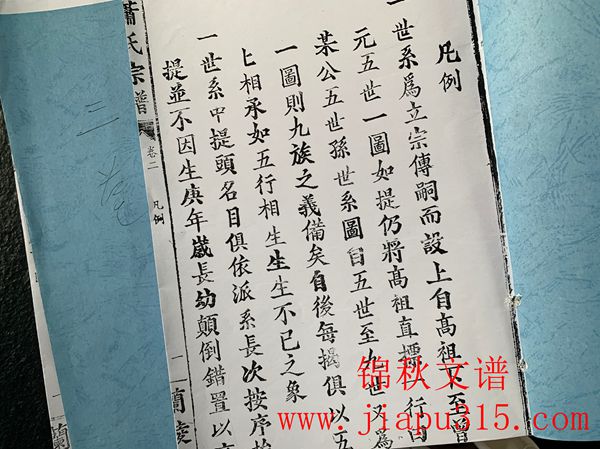 凡例
一世系爲立宗傳嗣而設上自髙祖下至曾
元五世一圖如提仍將髙祖直標一行曰
某公五世孫世系圖自五世至九世又爲
一圖則九族之義備矣自後每揭俱以五
七相承如五行相生生生不已之象
一世系中提頭名目俱依派系長次按序
提並不因生庚年歲長幼顛倒錯置以
蕭氏宗譜
卷二
凡例
一
蘭陵
三
卷
一
蘭
锦秋文谱
www.jiapu315.com